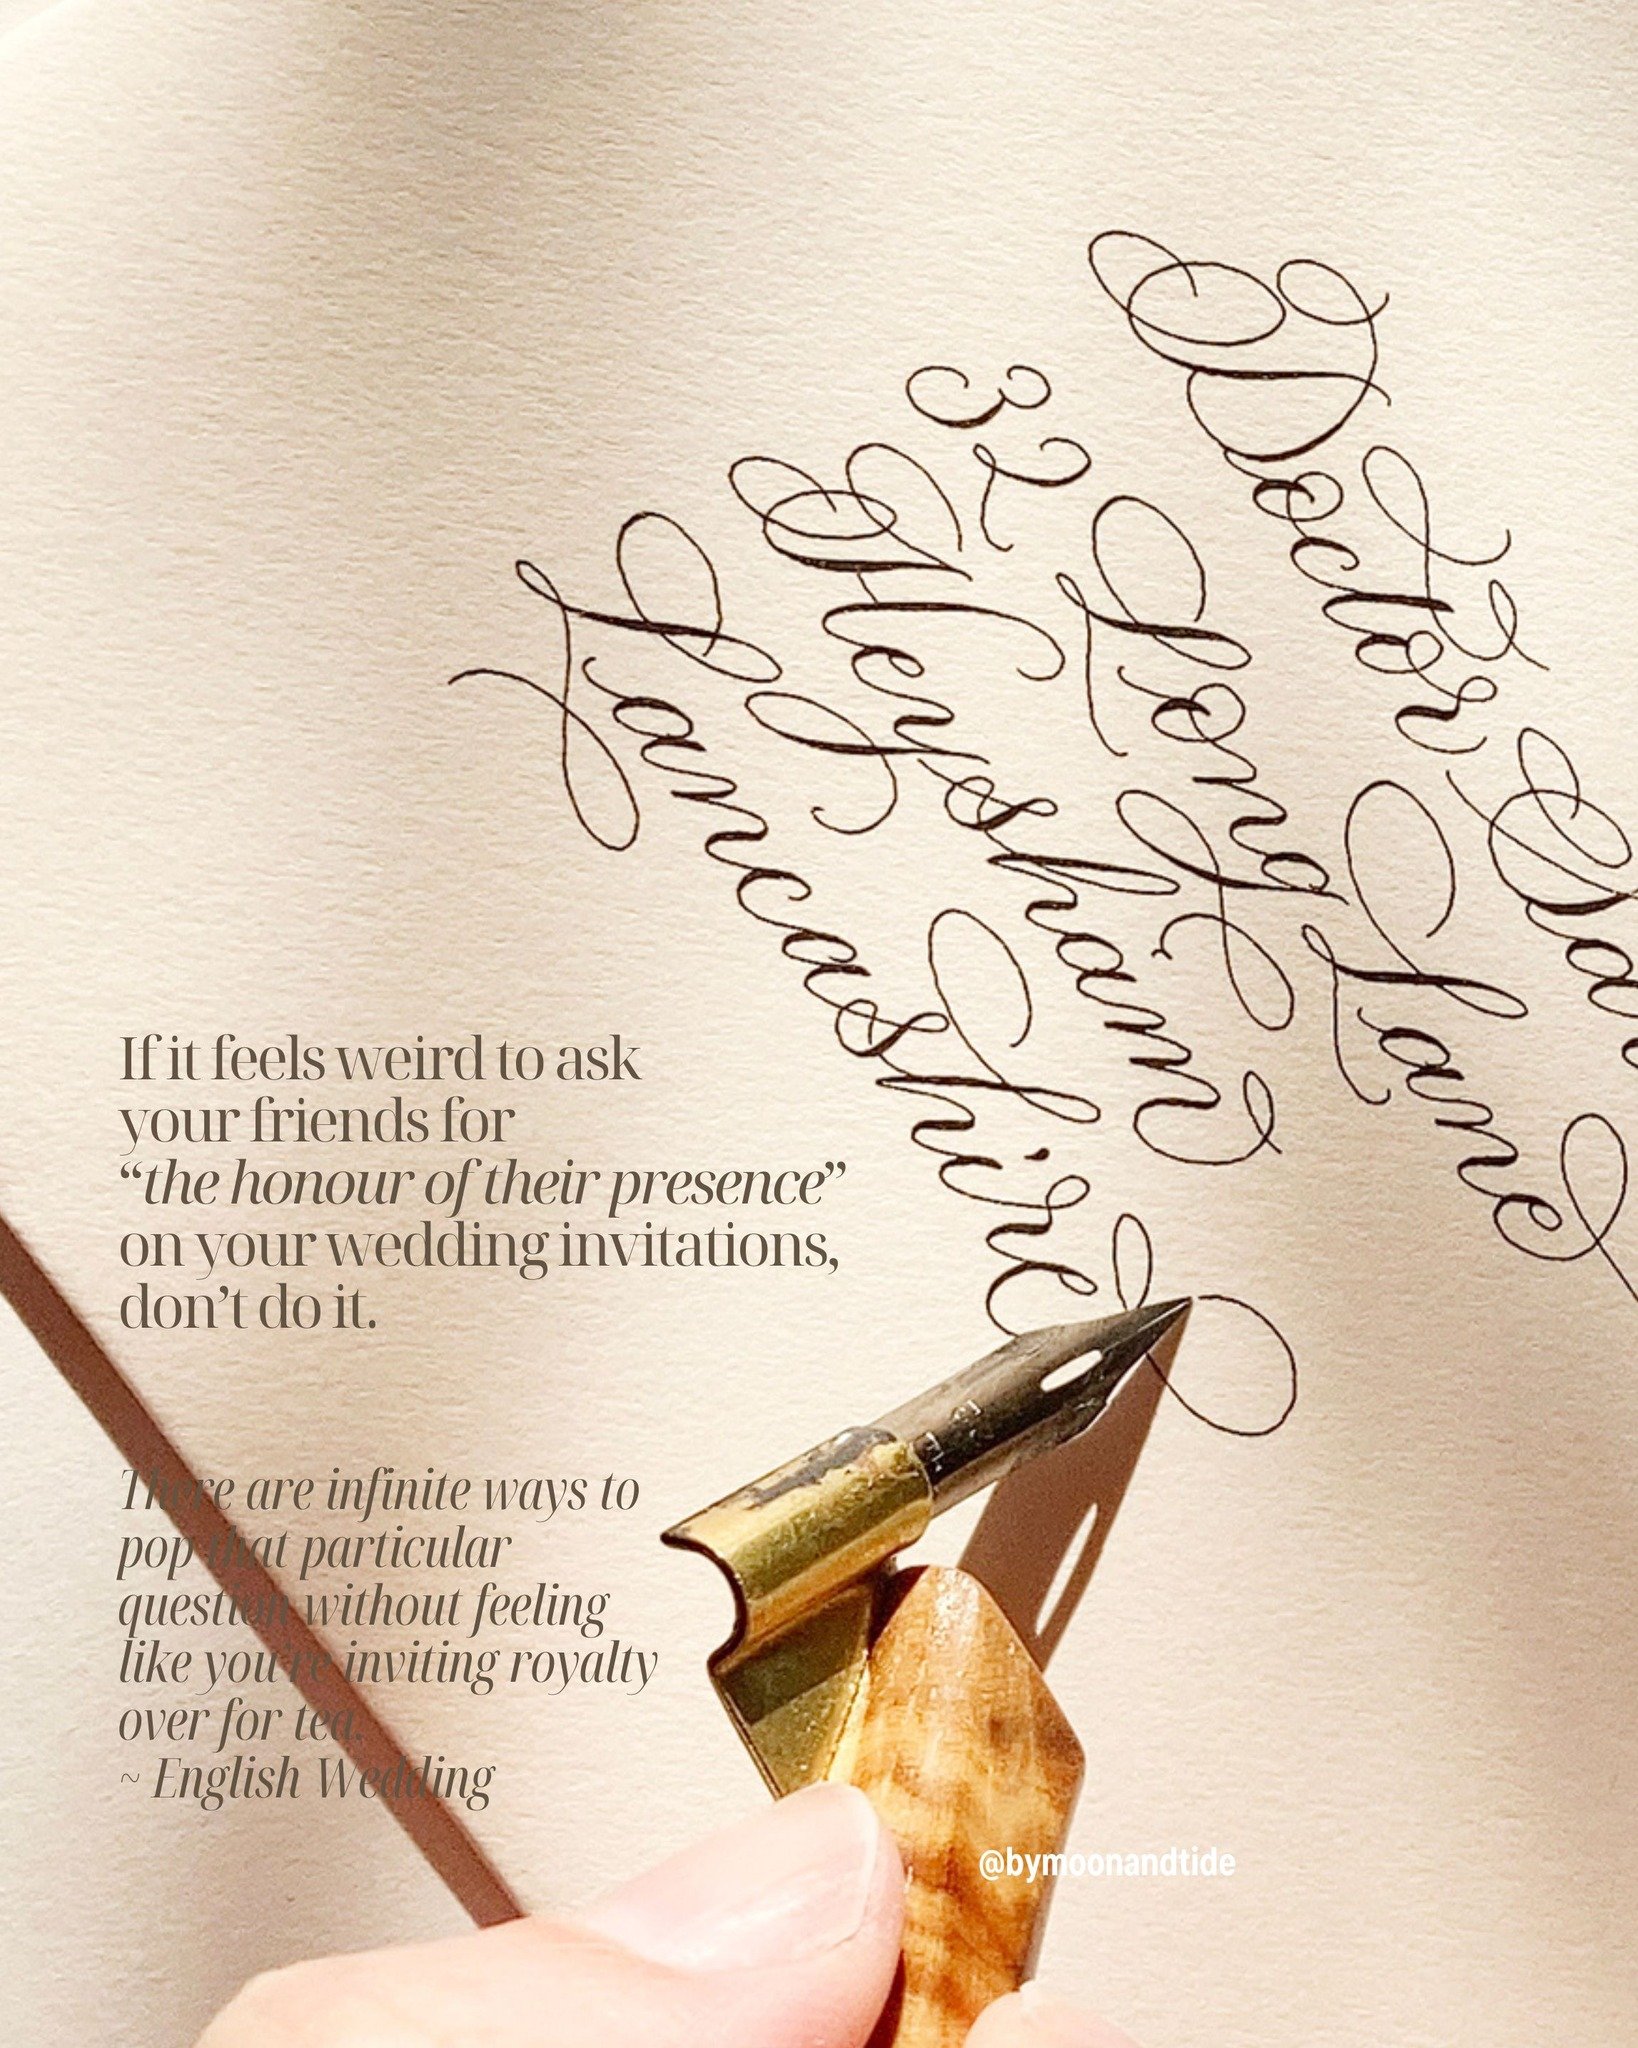 Doctor
32 Long Lane
Heysham
Lancashire
If it feels weird to ask
your friends for
“the honour of their presence”
on your wedding invitations,
don’t do it.
There are infinite ways to
pop that particular
question without feeling
like you’re inviting royalty
over for tea.
~ English Wedding
@bymoonandtide